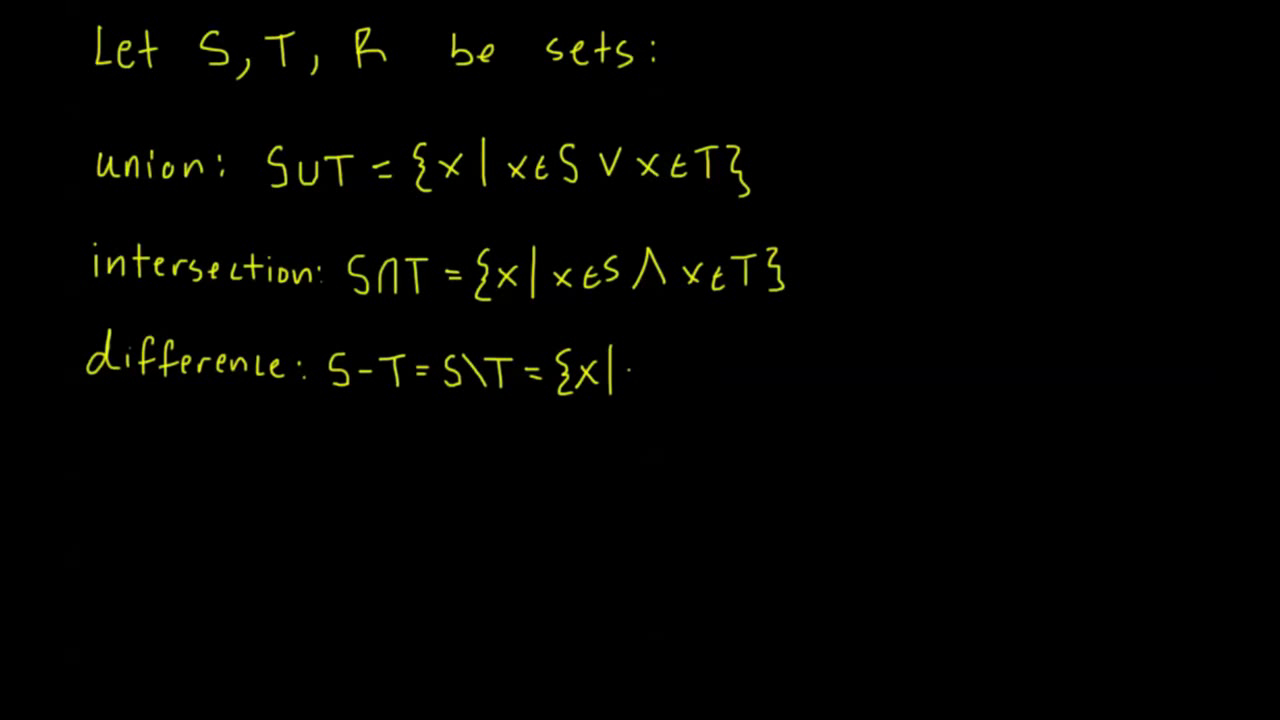 Let S, T, R be sets:
union: S∪T = {x | x∈S ∨ x∈T}
intersection: S∩T = {x | x∈S ∧ x∈T}
difference: S-T = S\T = {x |